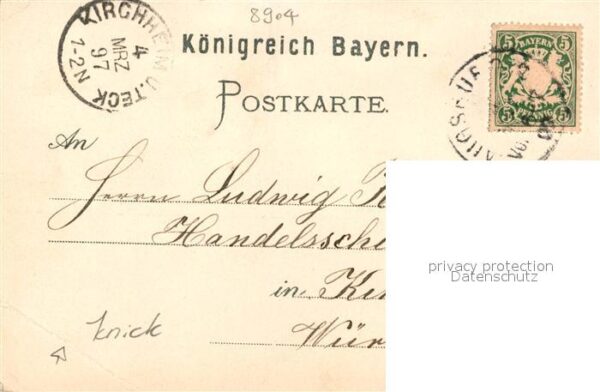 8904
KIRCHHEIM U. TECK
4
MRZ
97
1-2 N
Königreich Bayern.
POSTKARTE.
5 BAYERN 5
5 5
AUGSBURG
An
Herrn Ludwig
Handelssch
in
Knick
Wür
privacy protection
Datenschutz